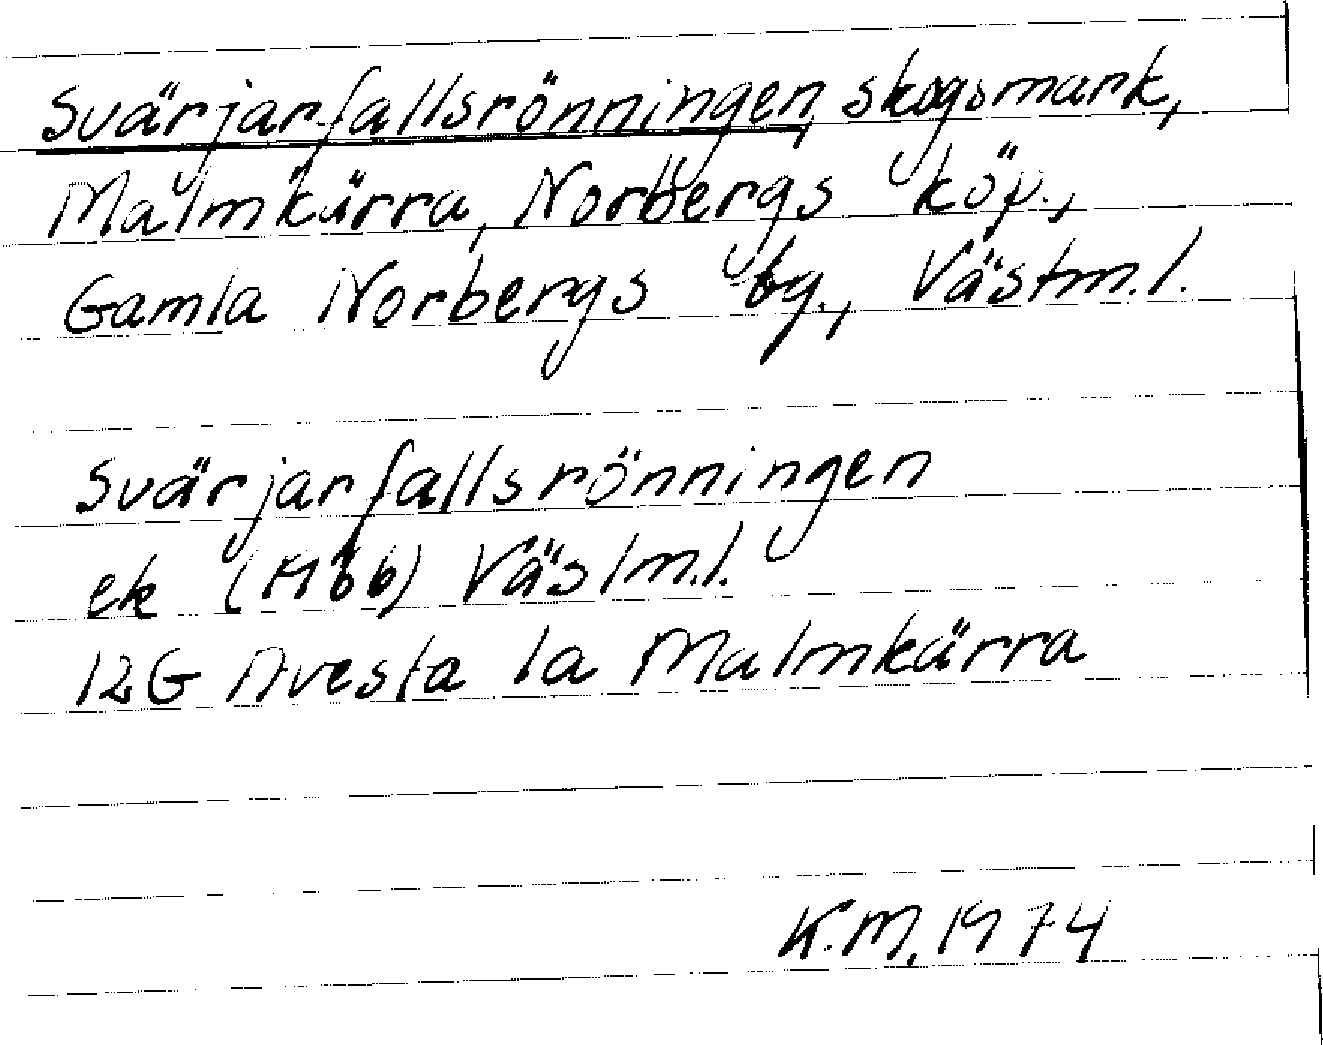 Svärjarfallsrönningen, skogsmark,
Malmkärra, Norbergs köp.,
Gamla Norbergs bg., Västm.l.
Svärjarfallsrönningen
ek (1966) Västm.l.
12G Avesta 1a Malmkärra
K.M. 1974